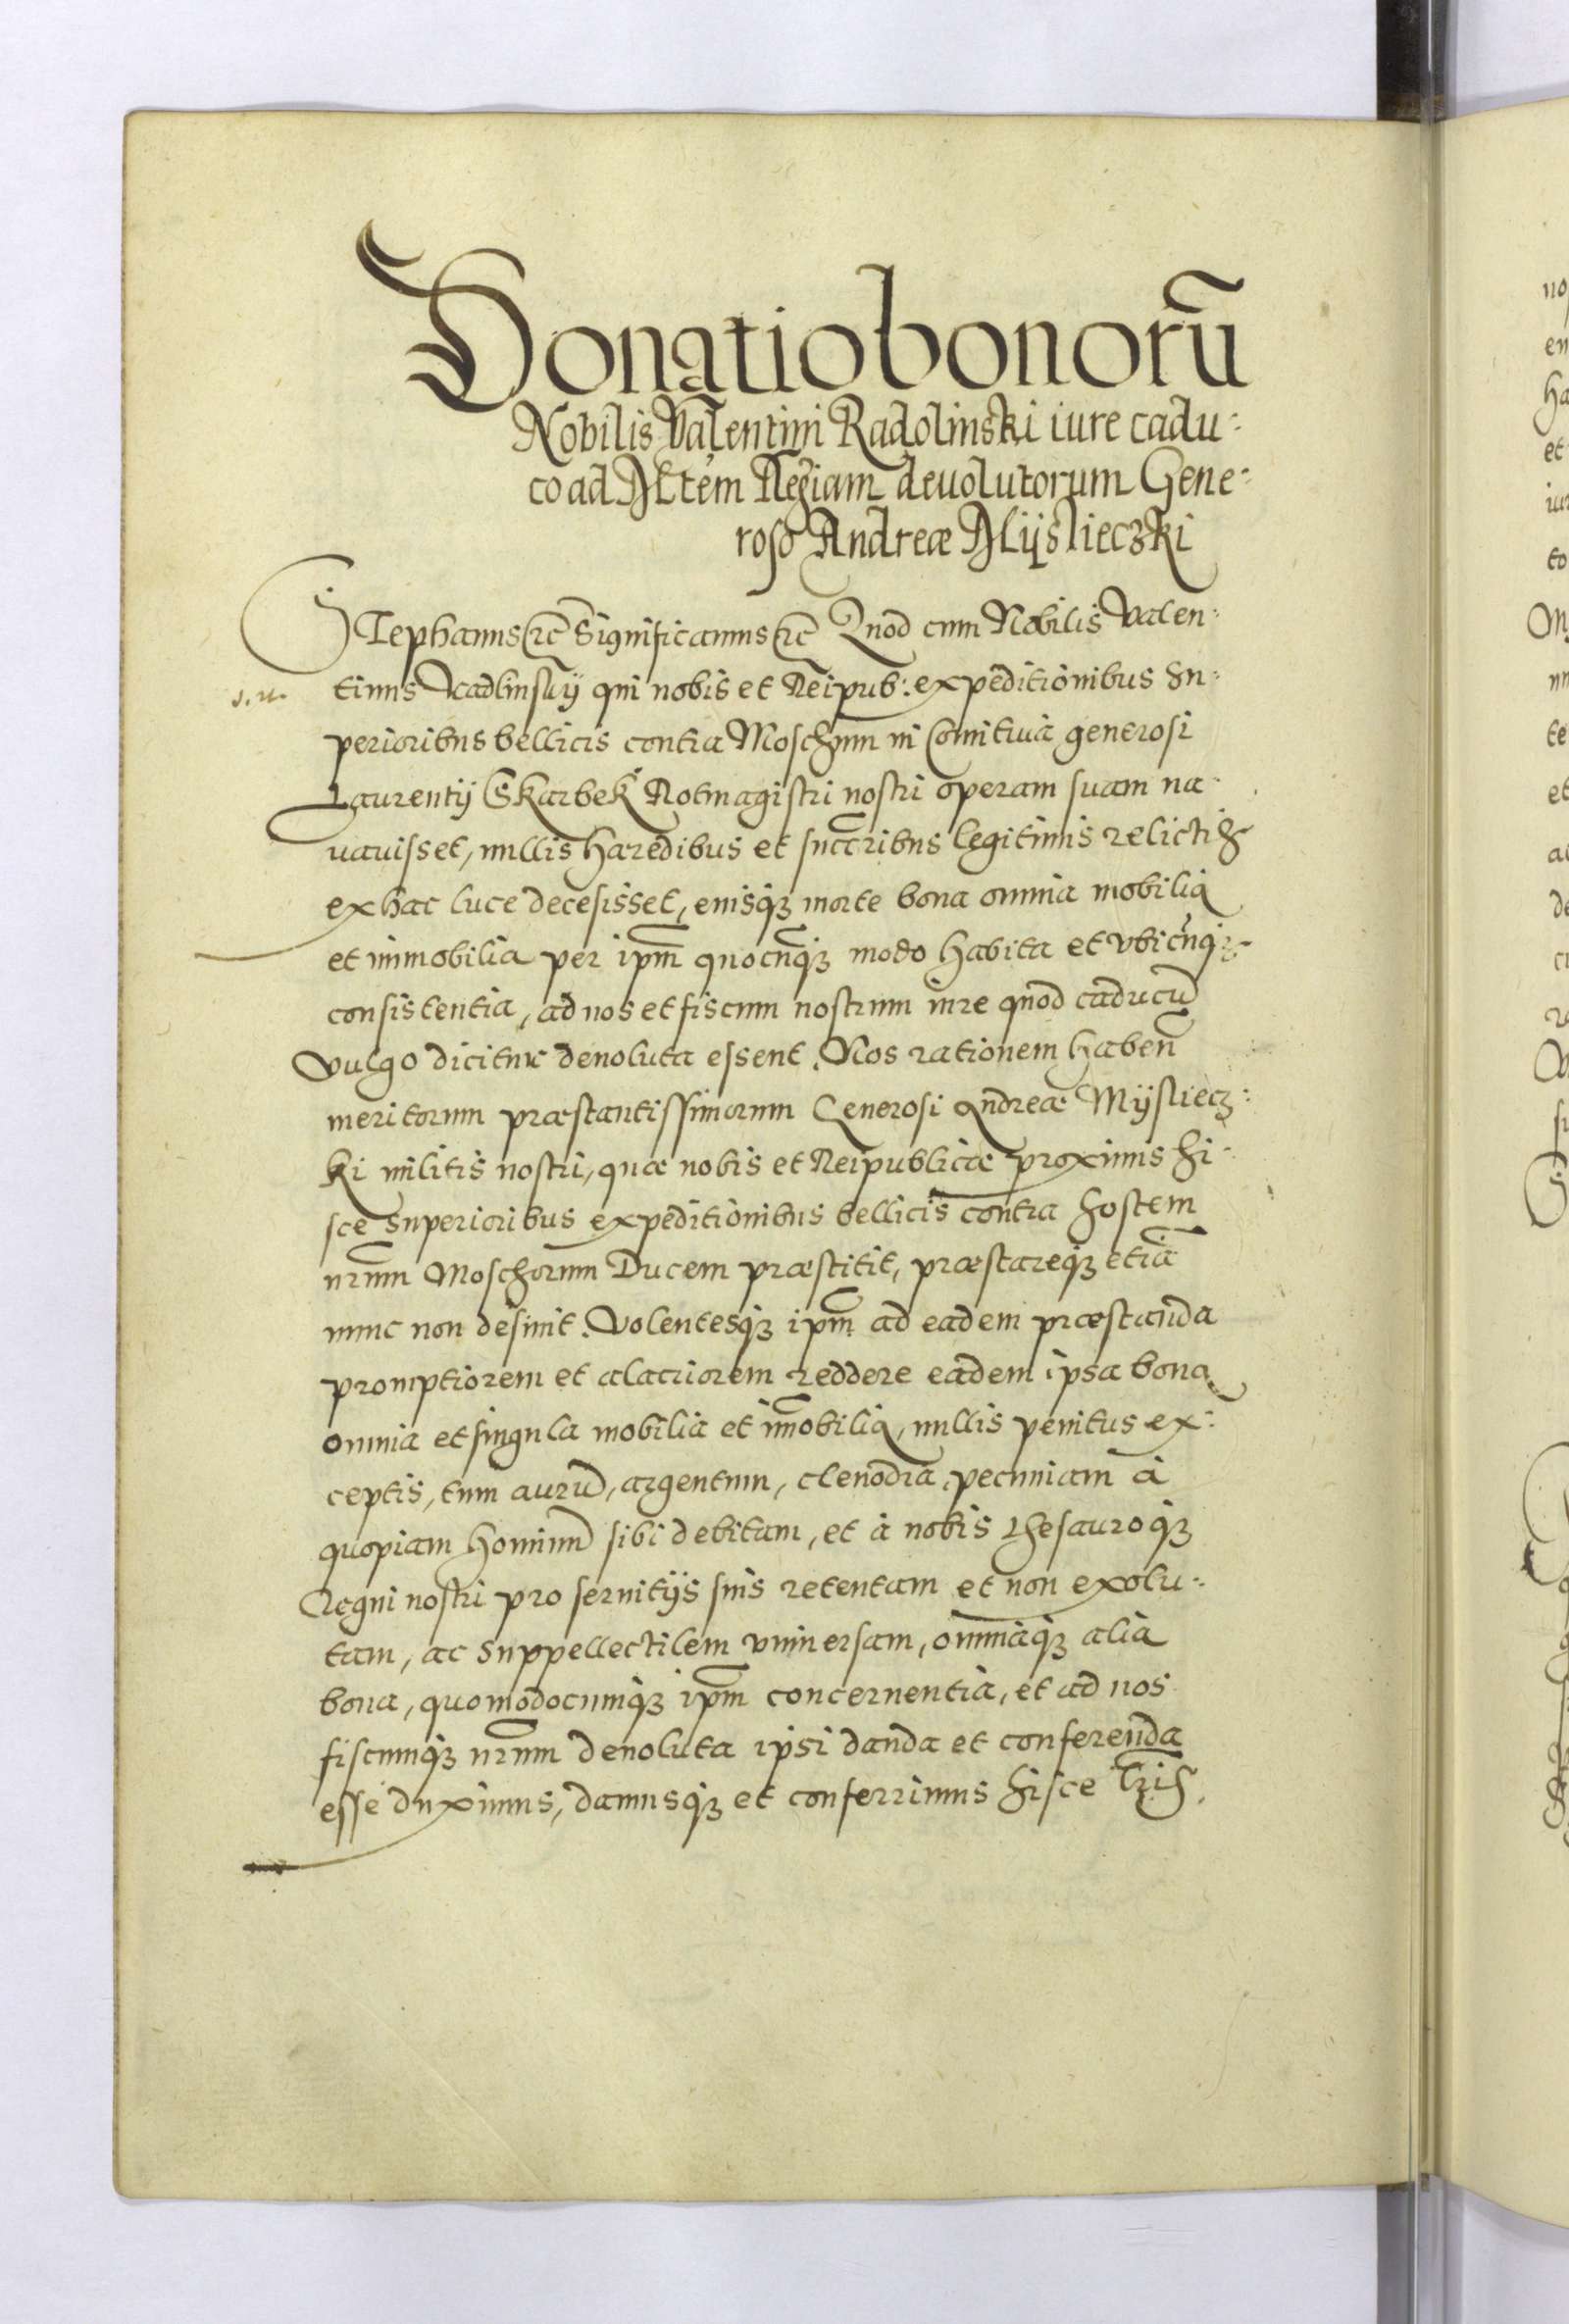 Donatio bonorū
Nobilis Valentini Radolinski iure cadu:
co ad Mtem Regiam deuolutorum Gene:
roso Andreæ Mÿslieczki
Stephanus etc̄ Significamus etc̄ Quod cum Nobilis Valen:
tinus Radlinskÿ qui nobis et Reipub: expeditionibus su:
perioribus bellicis contra Moschum in Comitiua generosi
Laurentÿ Skarbek Rotmagistri nostri operam suam na:
uauisset, nullis hæredibus et succ̄ribus legitimis relictis
ex hac luce decesisset, eiusq₃ morte bona omnia mobilia
et immobilia per ipm̄ quocūq₃ modo habita et vbicūq₃
consistentia, ad nos et fiscum nostrum iure quod caducū
vulgo dicitur deuoluta essent. Nos rationem haben̄
meritorum præstantissimorum Generosi Andreæ Mÿsliecz:
ki militis nostri, quæ nobis et Reipublicæ proximis hi:
sce superioribus expeditionibus bellicis contra hostem
nr̄um Moschorum Ducem præstitit, præstareq₃ etiā
nunc non desinit. Volentesq₃ ipm̄ ad eadem præstanda
promptiorem et alacriorem reddere eadem ipsa bona
omnia et singula mobilia et im̄obilia, nullis penitus ex:
ceptis, tum aurū, argentum, clenodia, pecuniam à
quopiam hominū sibi debitam, et à nobis thesauroq₃
Regni nostri pro seruitÿs suis retentam et non exolu:
tam, ac suppellectilem vniuersam, omniaq₃ alia
bona, quomodocunq₃ ipm̄ concernentia, et ad nos
fiscumq₃ nr̄um deuoluta ipsi danda et conferenda
esse duximus, damusq₃ et conferrimus hisce lr̄is.